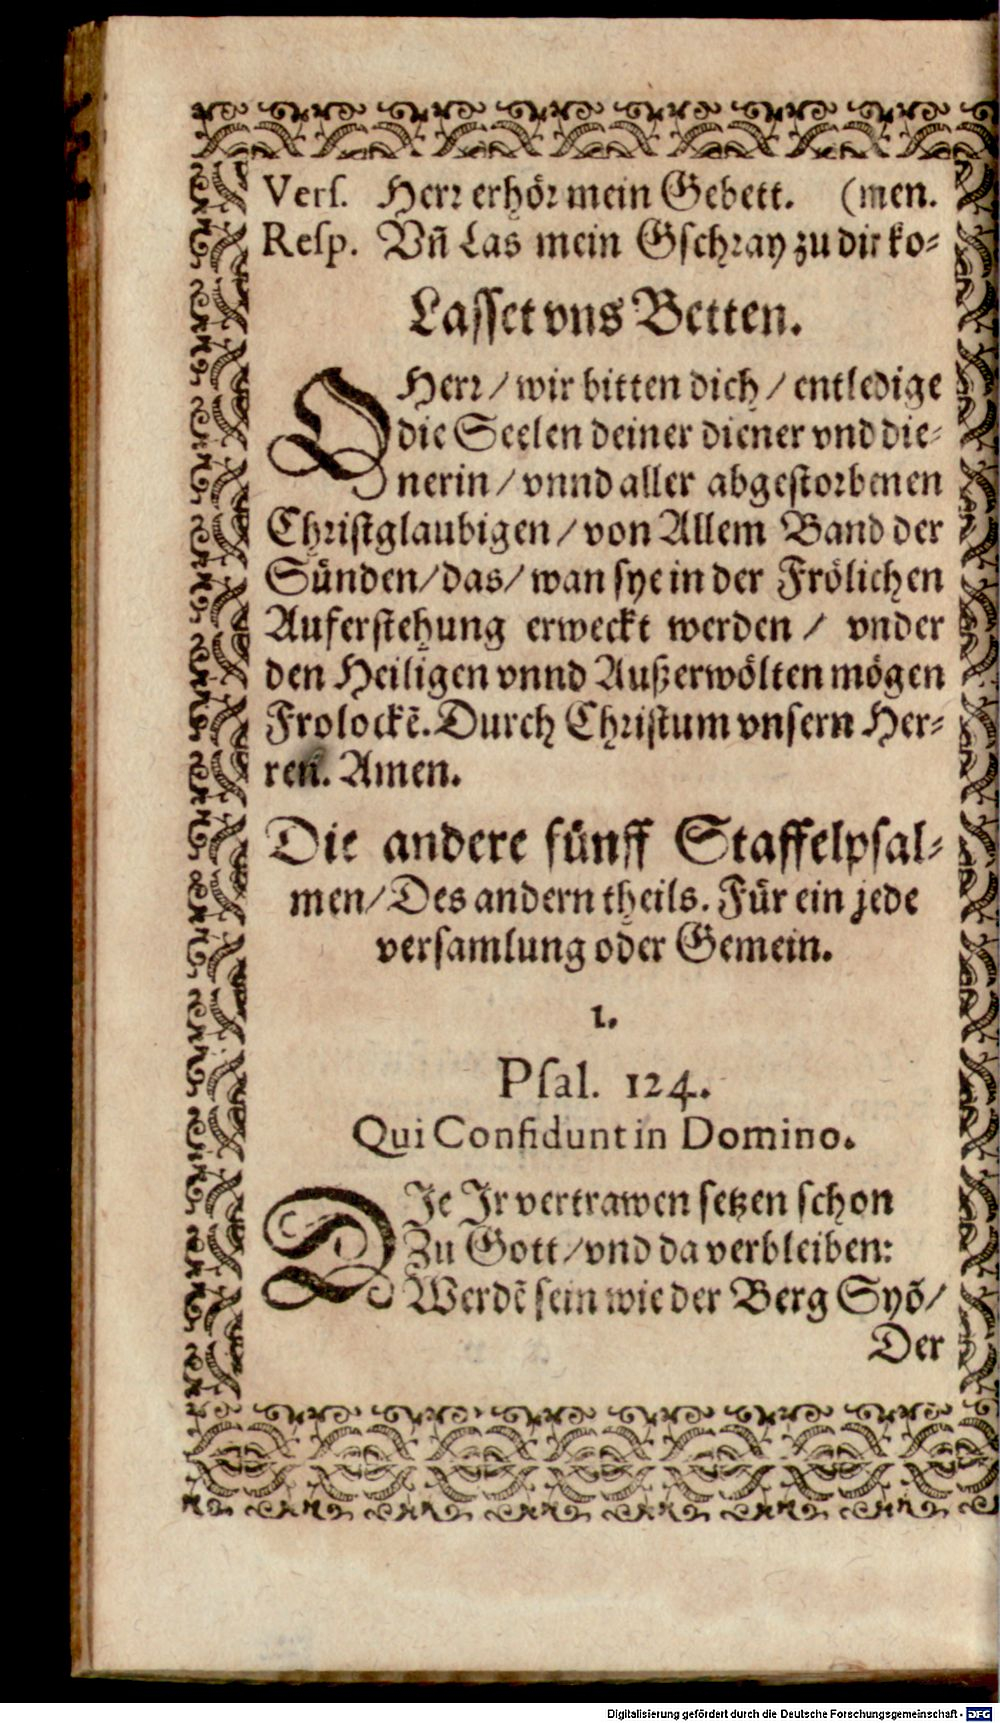 Verſ. Herr erhör mein Gebett. (men.
Reſp. Vñ Las mein Gſchray zu dir ko⸗
Laſſet vns Betten.
O Herr / wir bitten dich / entledige
die Seelen deiner diener vnd die⸗
nerin / vnnd aller abgeſtorbenen
Chriſtglaubigen / von Allem Band der
Sünden / das / wan ſye in der Frölichen
Auferſtehung erweckt werden / vnder
den Heiligen vnnd Außerwölten mögen
Frolockē. Durch Chriſtum vnſern Her⸗
ren. Amen.
Die andere fünff Staffelpſal⸗
men / Des andern theils. Für ein jede
verſamlung oder Gemein.
1.
Pſal. 124.
Qui Confidunt in Domino.
DJe Jr vertrawen ſetzen ſchon
Zu Gott / vnd da verbleiben:
Werdē ſein wie der Berg Syō /
Der
Digitalisierung gefördert durch die Deutsche Forschungsgemeinschaft - DFG